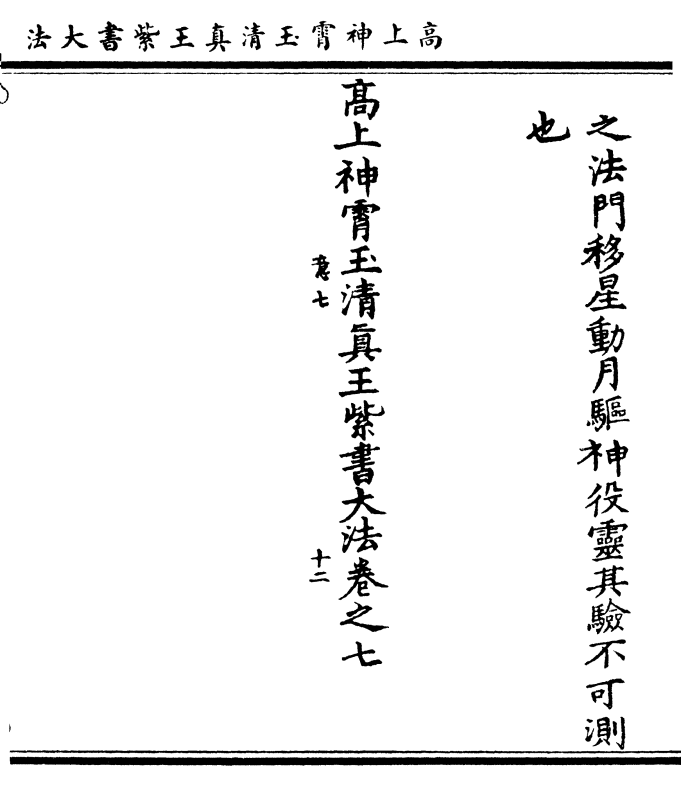 高上神霄玉清真王紫書大法
之法門移星動月驅神役靈其驗不可測
也
高上神霄玉清眞王紫書大法卷之七
意七
十二